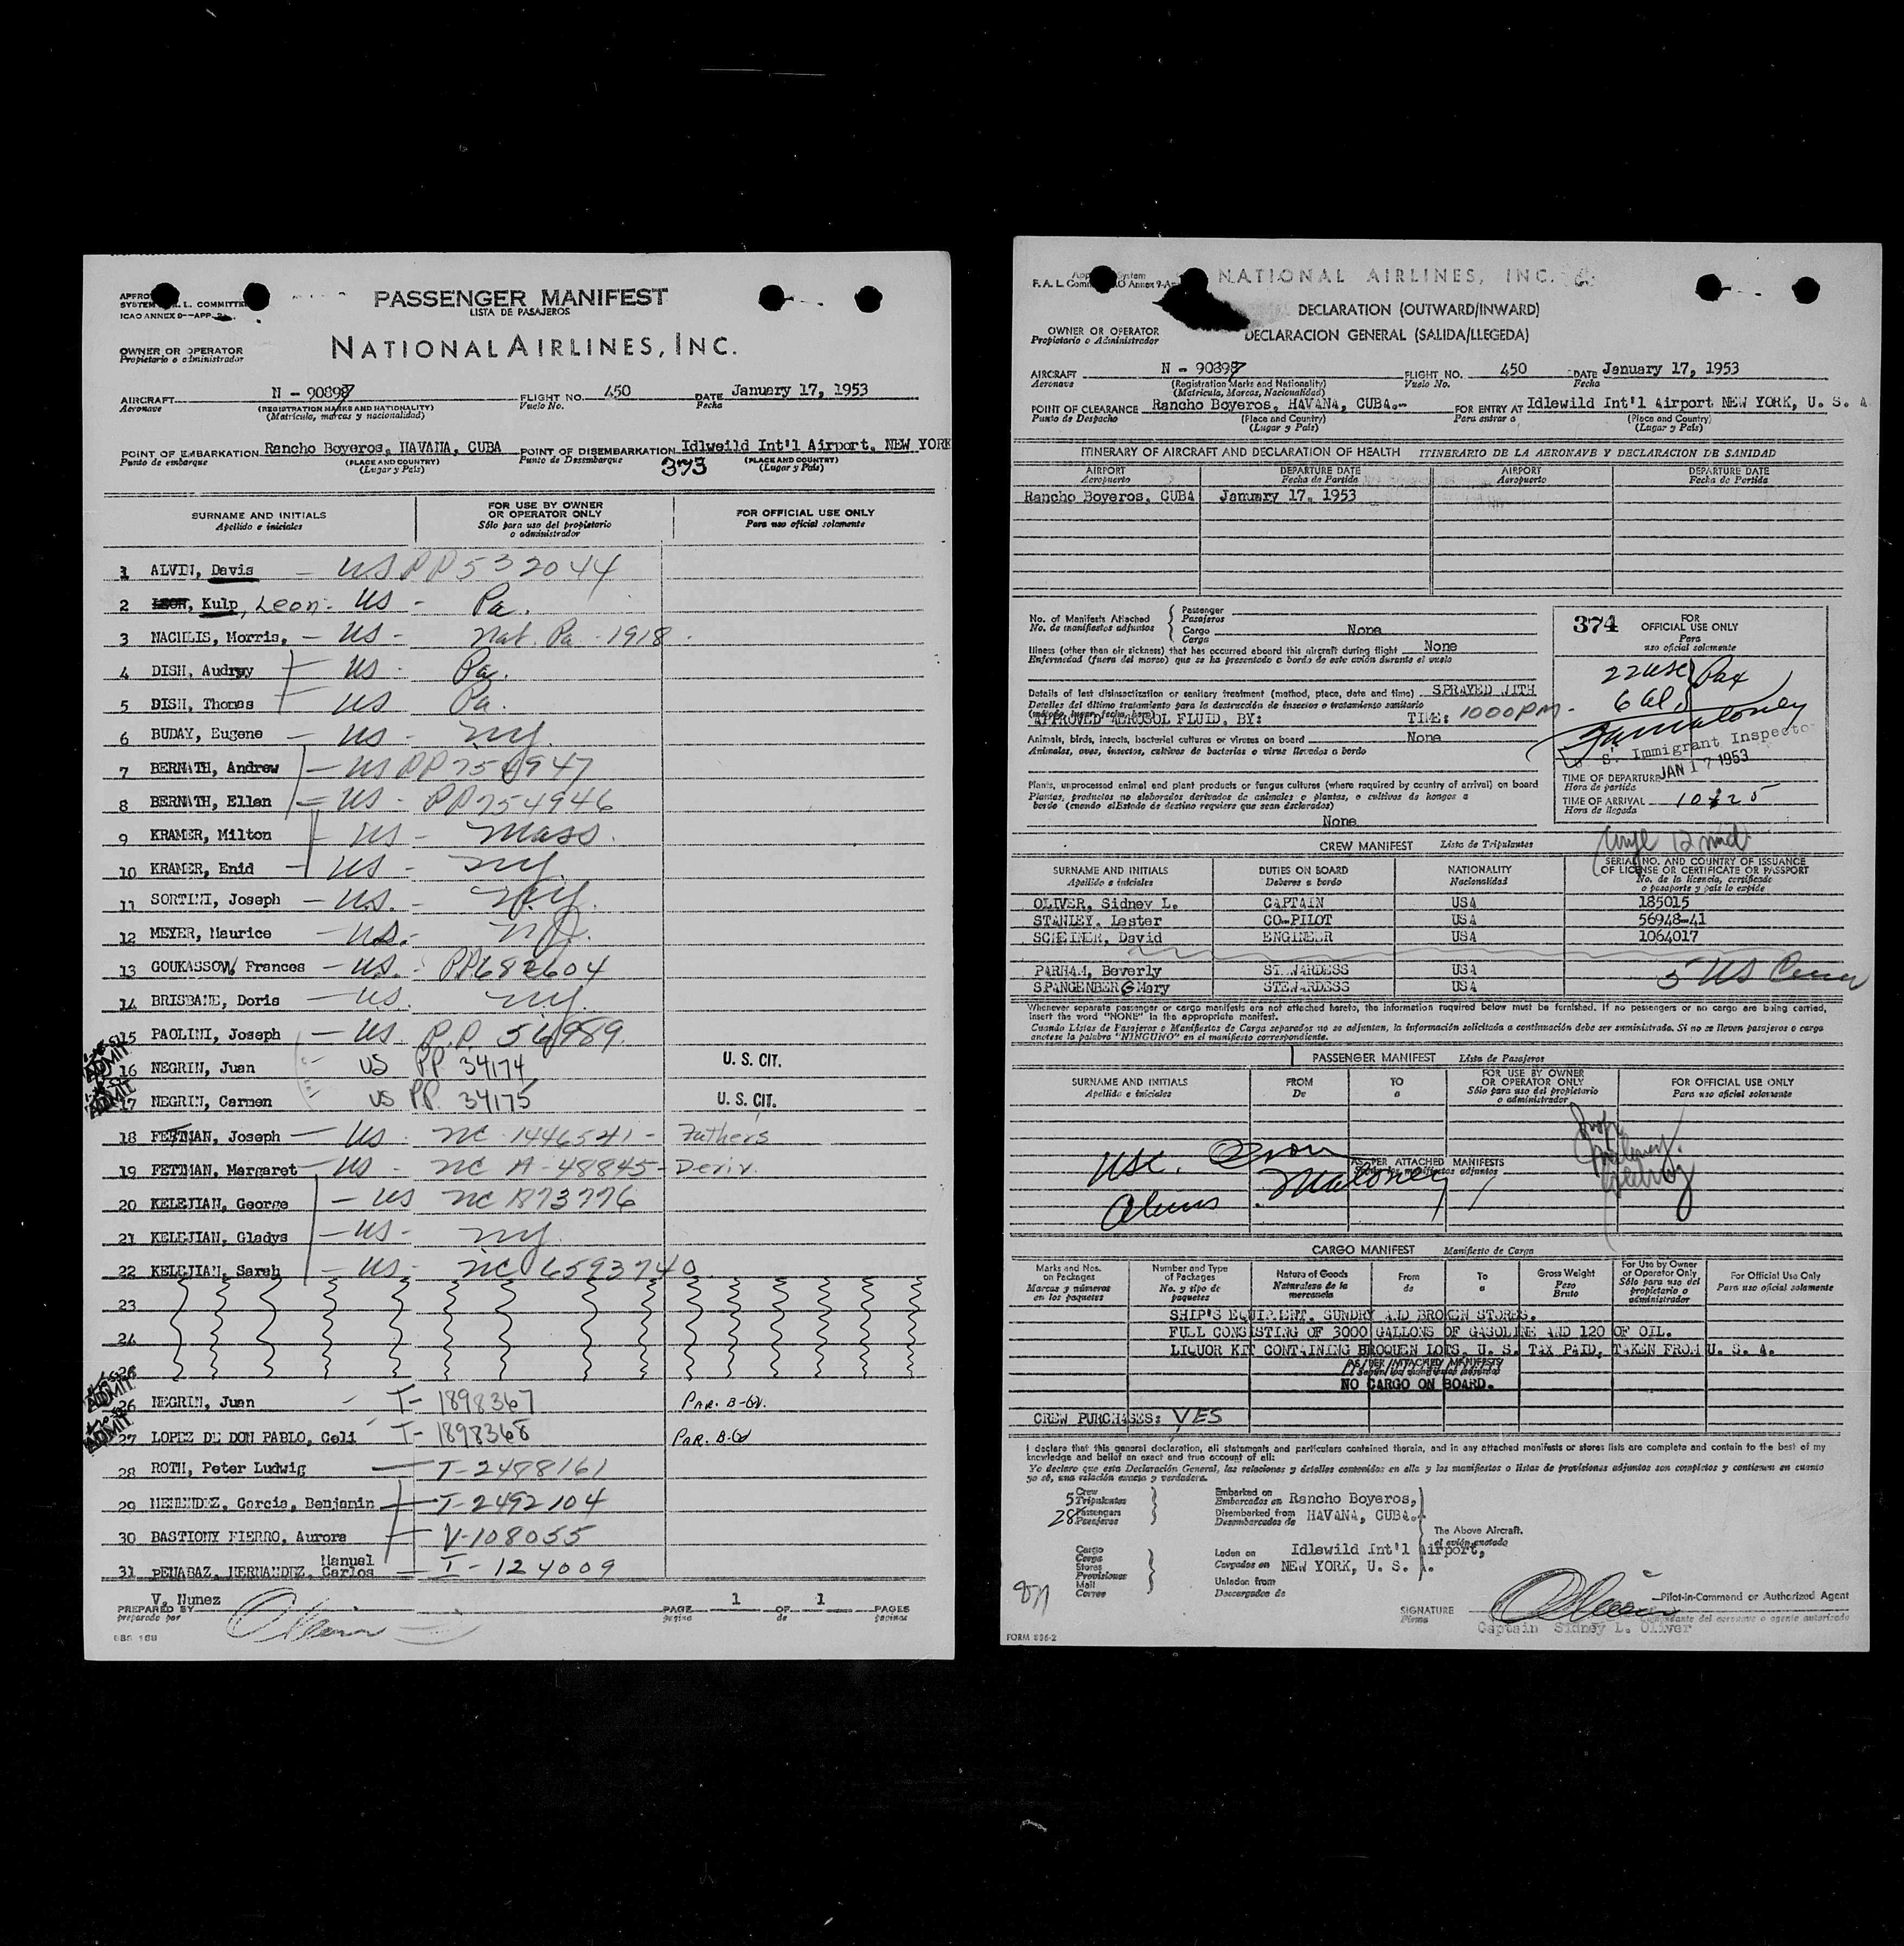 PASSENGER MANIFEST
LISTA DE PASAJEROS
ICAO ANNEX 9—APP.
NATIONAL AIRLINES, INC.
OWNER OR OPERATOR
Propietario o administrador
AIRCRAFT N - 90897 FLIGHT NO. 450 DATE January 17, 1953
Aeronave (REGISTRATION MARKS AND NATIONALITY) Vuelo No. Fecha
(Matrícula, marcas y nacionalidad)
POINT OF EMBARKATION Rancho Boyeros, HAVANA, CUBA POINT OF DISEMBARKATION Idlweild Int'l Airport, NEW YORK
Punto de embarque (PLACE AND COUNTRY) Punto de Desembarque 373 (PLACE AND COUNTRY)
(Lugar y País) (Lugar y País)
SURNAME AND INITIALS FOR USE BY OWNER OR OPERATOR ONLY FOR OFFICIAL USE ONLY
Apellido e iniciales Sólo para uso del propietario o administrador Para uso oficial solamente
1 ALVIN, Davis — US PP 532044
2 Kulp, Leon - US - Pa.
3 NACHLIS, Morris, — US - Nat. Pa - 1918.
4 DISH, Audrey US - Pa.
5 DISH, Thomas US Pa.
6 BUDAY, Eugene — US - NY.
7 BERNATH, Andrew — US PP 754947
8 BERNATH, Ellen — US - PP 754946
9 KRAMER, Milton — US - Mass.
10 KRAMER, Enid — US - NY.
11 SORTINI, Joseph — US. - NY.
12 MEYER, Maurice — US. - NJ.
13 GOUKASSOW, Frances — US. - PP 682604
14 BRISBANE, Doris — US. NY.
15 PAOLINI, Joseph — US. P.P. 56989.
ADMIT
16 NEGRIN, Juan US PP. 34174 U. S. CIT.
ADMIT
17 NEGRIN, Carmen US PP. 34175 U. S. CIT.
18 FETTMAN, Joseph — US - NC 1446541 - Father's
19 FETTMAN, Margaret — US - NC A-48845 - Deriv.
20 KELEJIAN, George — US NC 1873776
21 KELEJIAN, Gladys — US - NY.
22 KELEJIAN, Sarah — US - NC 6593740
23
24
ADMIT
26 NEGRIN, Juan T- 1898367 PAR. B-GV.
ADMIT
27 LOPEZ DE DON PABLO, Celi T- 1898368 PAR. B-GV
28 ROTH, Peter Ludwig — T-2488161
29 MENENDEZ, Garcia, Benjamin T-2492104
30 BASTIONY FIERRO, Aurora V-108055
31 PENABAZ, HERNANDEZ, Manuel Carlos — I - 124009
V. Nunez
PREPARED BY PAGE 1 OF 1 PAGES
preparado por página de páginas
NATIONAL AIRLINES, INC.
DECLARATION (OUTWARD/INWARD)
DECLARACION GENERAL (SALIDA/LLEGEDA)
OWNER OR OPERATOR
Propietario o Administrador
AIRCRAFT N - 90897 FLIGHT NO. 450 DATE January 17, 1953
Aeronave (Registration Marks and Nationality) Vuelo No. Fecha
(Matricula, Marcas, Nacionalidad)
POINT OF CLEARANCE Rancho Boyeros, HAVANA, CUBA.- FOR ENTRY AT Idlewild Int'l Airport NEW YORK, U. S. A
Punto de Despacho (Place and Country) Para entrar a (Place and Country)
(Lugar y País) (Lugar y País)
ITINERARY OF AIRCRAFT AND DECLARATION OF HEALTH ITINERARIO DE LA AERONAVE Y DECLARACION DE SANIDAD
AIRPORT DEPARTURE DATE AIRPORT DEPARTURE DATE
Aeropuerto Fecha de Partida Aeropuerto Fecha de Partida
Rancho Boyeros, CUBA January 17, 1953
No. of Manifests Attached Passenger
No. de manifiestos adjuntos Pasajeros
Cargo None
Carga
Illness (other than air sickness) that has occurred aboard this aircraft during flight None
Enfermedad (fuera del mareo) que se ha presentado a bordo de este avión durante el vuelo
Details of last disinsectization or sanitary treatment (method, place, date and time) SPRAYED WITH
Detalles del último tratamiento para la destrucción de insectos o tratamiento sanitario
APPROVED AEROSOL FLUID. BY: TIME: 1000 PM -
Animals, birds, insects, bacterial cultures or viruses on board None
Animales, aves, insectos, cultivos de bacterias o virus llevados a bordo
Plants, unprocessed animal and plant products or fungus cultures (where required by country of arrival) on board
Plantas, productos no elaborados derivados de animales o plantas, o cultivos de hongos a
bordo (cuando elEstado de destino requiere que sean declarados)
None
374 FOR OFFICIAL USE ONLY
Para uso oficial solamente
22 USC Pax
6 al.
Maloney
S. Immigrant Inspector
TIME OF DEPARTURE JAN 17 1953
Hora de partida
TIME OF ARRIVAL 1025
Hora de llegada
CREW MANIFEST Lista de Tripulantes
SURNAME AND INITIALS DUTIES ON BOARD NATIONALITY SERIAL NO. AND COUNTRY OF ISSUANCE OF LICENSE OR CERTIFICATE OR PASSPORT
Apellido e iniciales Deberes a bordo Nacionalidad No. de la licencia, certificado o pasaporte y país lo expide
OLIVER, Sidney L. CAPTAIN USA 185015
STANLEY, Lester CO-PILOT USA 56948-41
SCHEINER, David ENGINEER USA 1064017
PARHAM, Beverly STEWARDESS USA
SPANGENBERG Mary STEWARDESS USA
5 US
Whenever separate passenger or cargo manifests are not attached hereto, the information required below must be furnished. If no passengers or no cargo are being carried,
insert the word "NONE" in the appropriate manifest.
Cuando Listas de Pasajeros o Manifiestos de Carga separados no se adjuntan, la información solicitada a continuación debe ser suministrada. Si no se lleven pasajeros o carga
anotese la palabra "NINGUNO" en el manifiesto correspondiente.
PASSENGER MANIFEST Lista de Pasajeros
SURNAME AND INITIALS FROM TO FOR USE BY OWNER OR OPERATOR ONLY FOR OFFICIAL USE ONLY
Apellido e iniciales De a Sólo para uso del propietario o administrador Para uso oficial solamente
AS PER ATTACHED MANIFESTS
USC.
Aliens Maloney
CARGO MANIFEST Manifiesto de Carga
Marks and Nos. on Packages Number and Type of Packages Nature of Goods From To Gross Weight For Use by Owner or Operator Only For Official Use Only
Marcas y números en los paquetes No. y tipo de paquetes Naturaleza de la mercancia De a Peso Bruto Sólo para uso del propietario o administrador Para uso oficial solamente
SHIP'S EQUIPMENT. SUNDRY AND BROKEN STORES.
FULL CONSISTING OF 3000 GALLONS OF GASOLINE AND 120 OF OIL.
LIQUOR KIT CONTAINING BROQUEN LOTS, U. S. TAX PAID, TAKEN FROM U. S. A.
AS PER ATTACHED MANIFESTS
NO CARGO ON BOARD.
CREW PURCHASES: YES
I declare that this general declaration, all statements and particulars contained therein, and in any attached manifests or stores lists are complete and contain to the best of my
knowledge and belief an exact and true account of all:
Yo declaro que esta Declaración General, las relaciones y detalles contenidos en ella y los manifiestos o listas de provisiones adjuntos son completos y contienen en cuanto
yo sé, una relación exacta y verdadera.
5 Crew Tripulantes Embarked on Embarcados en Rancho Boyeros,
28 Passengers Pasajeros Disembarked from Desembarcados de HAVANA, CUBA.
The Above Aircraft.
el avión anotado
Cargo Carga Laden on Idlewild Int'l Airport,
Stores Provisiones Cargados en NEW YORK, U. S. A.
Mail Correo Unladen from Descargados de
SIGNATURE Pilot-in-Command or Authorized Agent
Firma Comandante del aeronave o agente autorizado
Captain Sidney L. Oliver
FORM 836-2